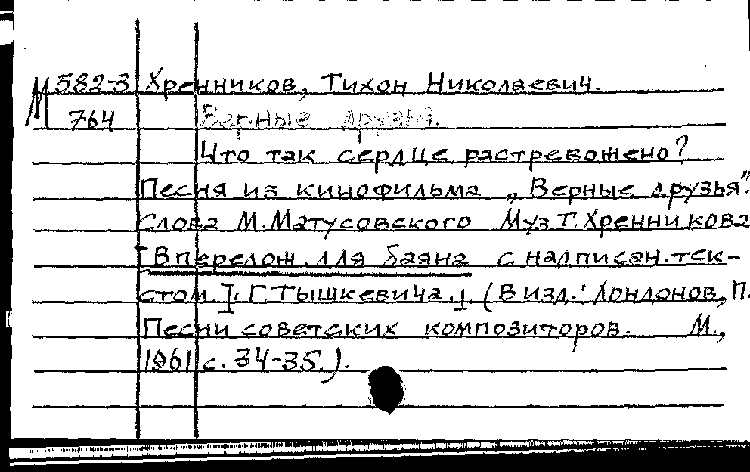 М 582-3 Хренников, Тихон Николаевич.
764 Верные друзья.
Что так сердце растревожено?
Песня из кинофильма „Верные друзья".
Слова М. Матусовского Муз. Т. Хренникова
[В перелож. для баяна с надписан. тек-
стом.]. Г. Тышкевича. (В изд.: Лондонов, П.
Песни советских композиторов. М.,
1961 с. 34-35.).